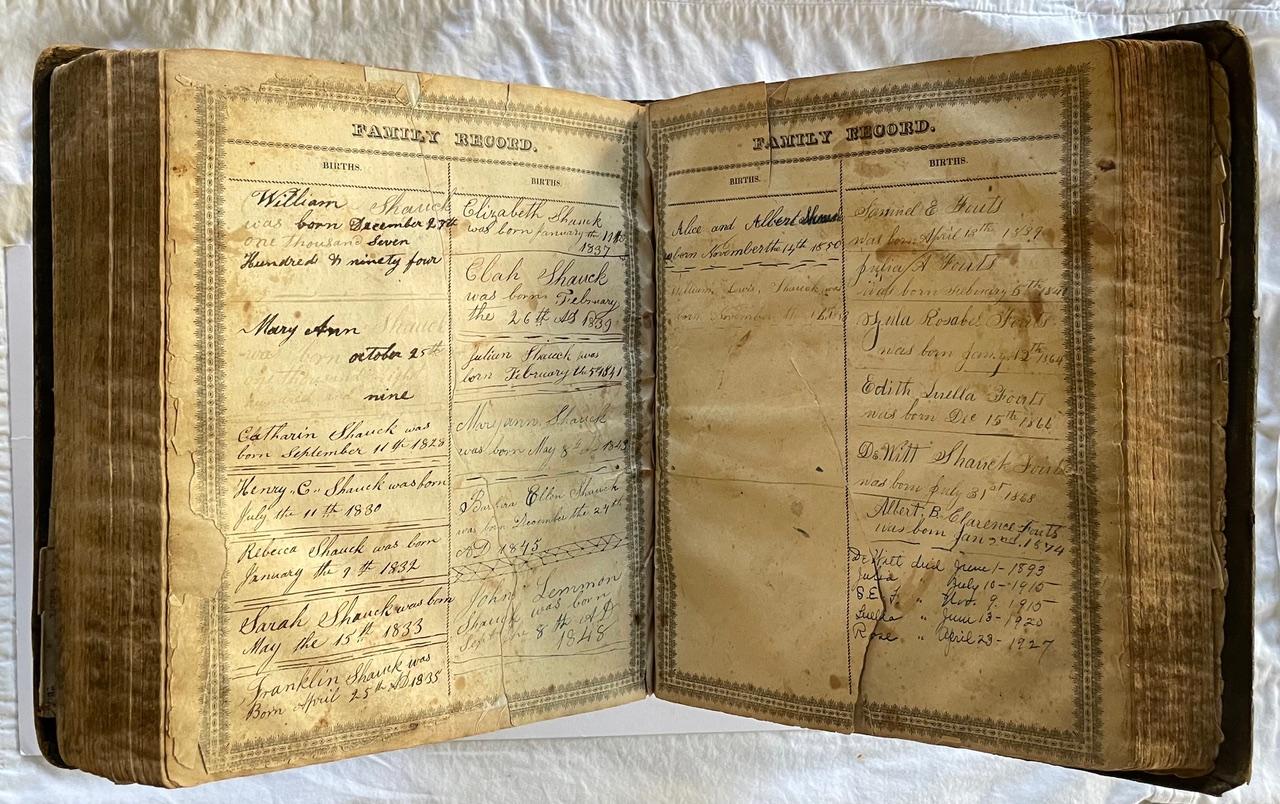 FAMILY RECORD.
BIRTHS.
William Shauck
was born December 27th
one thousand Seven
Hundred & ninety four
Mary Ann Shauck
was born october 25th
nine
Catharin Shauck was
born September 11th 1828
Henry C Shauck was born
July the 11th 1830
Rebecca Shauck was born
January the 9th 1832
Sarah Shauck was born
May the 15th 1833
Franklin Shauck was
Born April 25th AD 1835
BIRTHS.
Elizabeth Shauck
was born January the
1837
Elah Shauck
was born February
the 26th AD 1839
Julian Shauck was
born February the 5th 1841
Maryann Shauck
was born May 8th
Barbra Ellen Shauck
was born December the 24th
AD 1845
John Lemmon
Shauck was born
the 8th AD
1848
FAMILY RECORD.
BIRTHS.
Alice and Albert Shauck
born November the 14th 1850
William Lewis Shauck was
born November
BIRTHS.
Samuel E Fouts
was born April 13th 1839
Julia A Fouts
was born February 5th 1841
Rosabel Fouts
was born Jany 12th 1864
Edith Luella Fouts
was born Dec 15th
DeWitt Shauck Fouts
was born July 31st 1868
Albert B. Clarence Fouts
was born Jan 1874
DeWitt died June 1 - 1893
Julia " July 10 - 1915
S.E.F. " Nov. 9. 1915
Luella " June 13 - 1920
Rose " April 23 - 1927